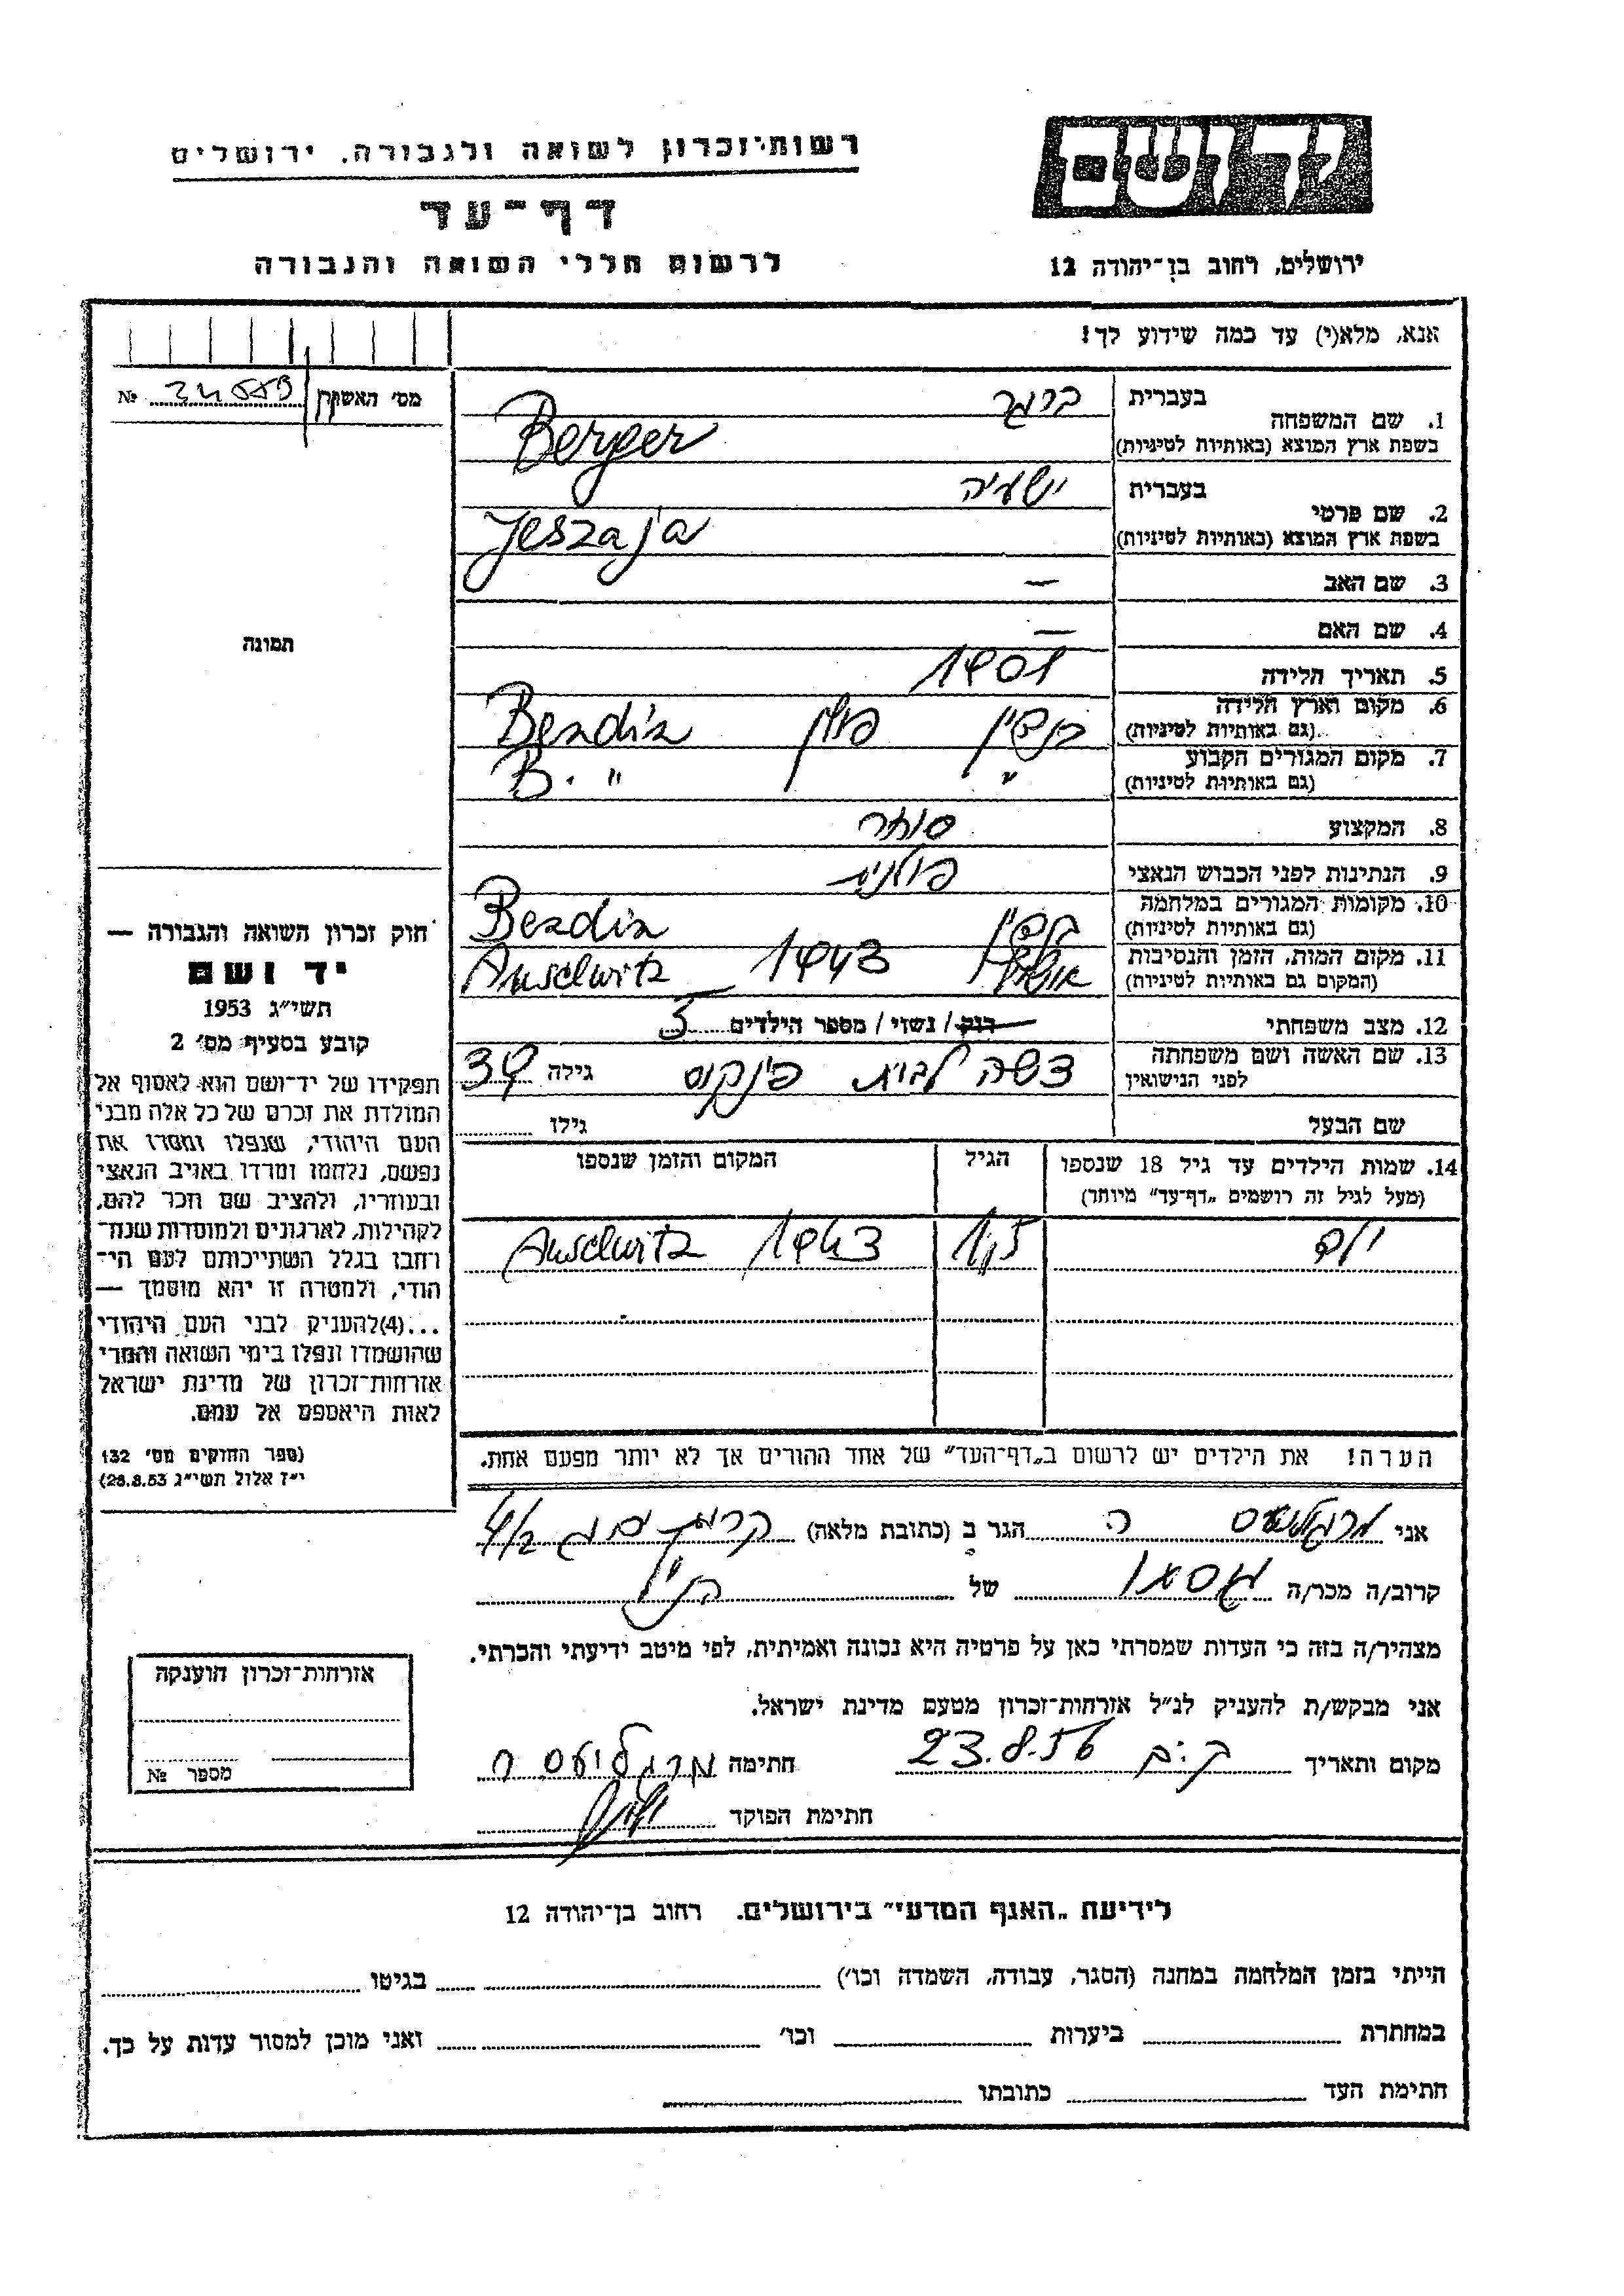 רשות־זכרון לשואה ולגבורה, ירושלים
יד ושם
דף־עד
לרשום חללי השואה והגבורה
ירושלים, רחוב בן־יהודה 12
אנא, מלא(י) עד כמה שידוע לך!
מס׳ האשנן № 
1. שם המשפחה
בעברית ברגר
בשפת ארץ המוצא (באותיות לטיניות) Berger
2. שם פרטי
בעברית ישעיה
בשפת ארץ המוצא (באותיות לטיניות) Jeszaja
3. שם האב —
4. שם האם —
5. תאריך הלידה 1901
6. מקום וארץ הלידה בנדין פולין Bendin
(גם באותיות לטיניות)
7. מקום המגורים הקבוע " " B.
(גם באותיות לטיניות)
8. המקצוע סוחר
9. הנתינות לפני הכבוש הנאצי פולנית
10. מקומות המגורים במלחמה בנדין Bendin
(גם באותיות לטיניות)
11. מקום המות, הזמן והנסיבות 1943 Auschwitz
(המקום גם באותיות לטיניות)
12. מצב משפחתי רווק / נשוי / מספר הילדים
13. שם האשה ושם משפחתה לבית פינקוס גילה 39
לפני הנישואין
שם הבעל גילו
14. שמות הילדים עד גיל 18 שנספו הגיל המקום והזמן שנספו
(מעל לגיל זה רושמים „דף־עד” מיוחד)
ילד 1,5 1943 Auschwitz
הערה! את הילדים יש לרשום ב„דף־העד” של אחד ההורים אך לא יותר מפעם אחת.
תמונה
חוק זכרון השואה והגבורה —
יד ושם
תשי״ג 1953
קובע בסעיף מס׳ 2
תפקידו של יד־ושם הוא לאסוף אל
המולדת את זכרם של כל אלה מבני
העם היהודי, שנפלו ומסרו את
נפשם, נלחמו ומרדו באויב הנאצי
ובעוזריו, ולהציב שם וזכר להם,
לקהילות, לארגונים ולמוסדות שנח־
רבו בגלל השתייכותם לעם הי־
הודי, ולמטרה זו יהא מוסמך —
...(4) להעניק לבני העם היהודי
שהושמדו ונפלו בימי השואה והמרי
אזרחות־זכרון של מדינת ישראל
לאות היאספם אל עמם.
(ספר החוקים מס׳ 132
י״ז אלול תשי״ג 28.8.53)
אני מרגוליעס ה הגר ב (כתובת מלאה)
קרוב/ה מכר/ה של הנ״ל
מצהיר/ה בזה כי העדות שמסרתי כאן על פרטיה היא נכונה ואמיתית, לפי מיטב ידיעתי והכרתי.
אני מבקש/ת להעניק לנ״ל אזרחות־זכרון מטעם מדינת ישראל.
מקום ותאריך 23.8.56 חתימה מרגליעס ה
חתימת הפוקד
אזרחות־זכרון הוענקה
מספר №
לידיעת „האגף המדעי” בירושלים. רחוב בן־יהודה 12
הייתי בזמן המלחמה במחנה (הסגר, עבודה, השמדה וכו׳) בגיטו
במחתרת ביערות וכו׳ ואני מוכן למסור עדות על כך.
חתימת העד כתובתו